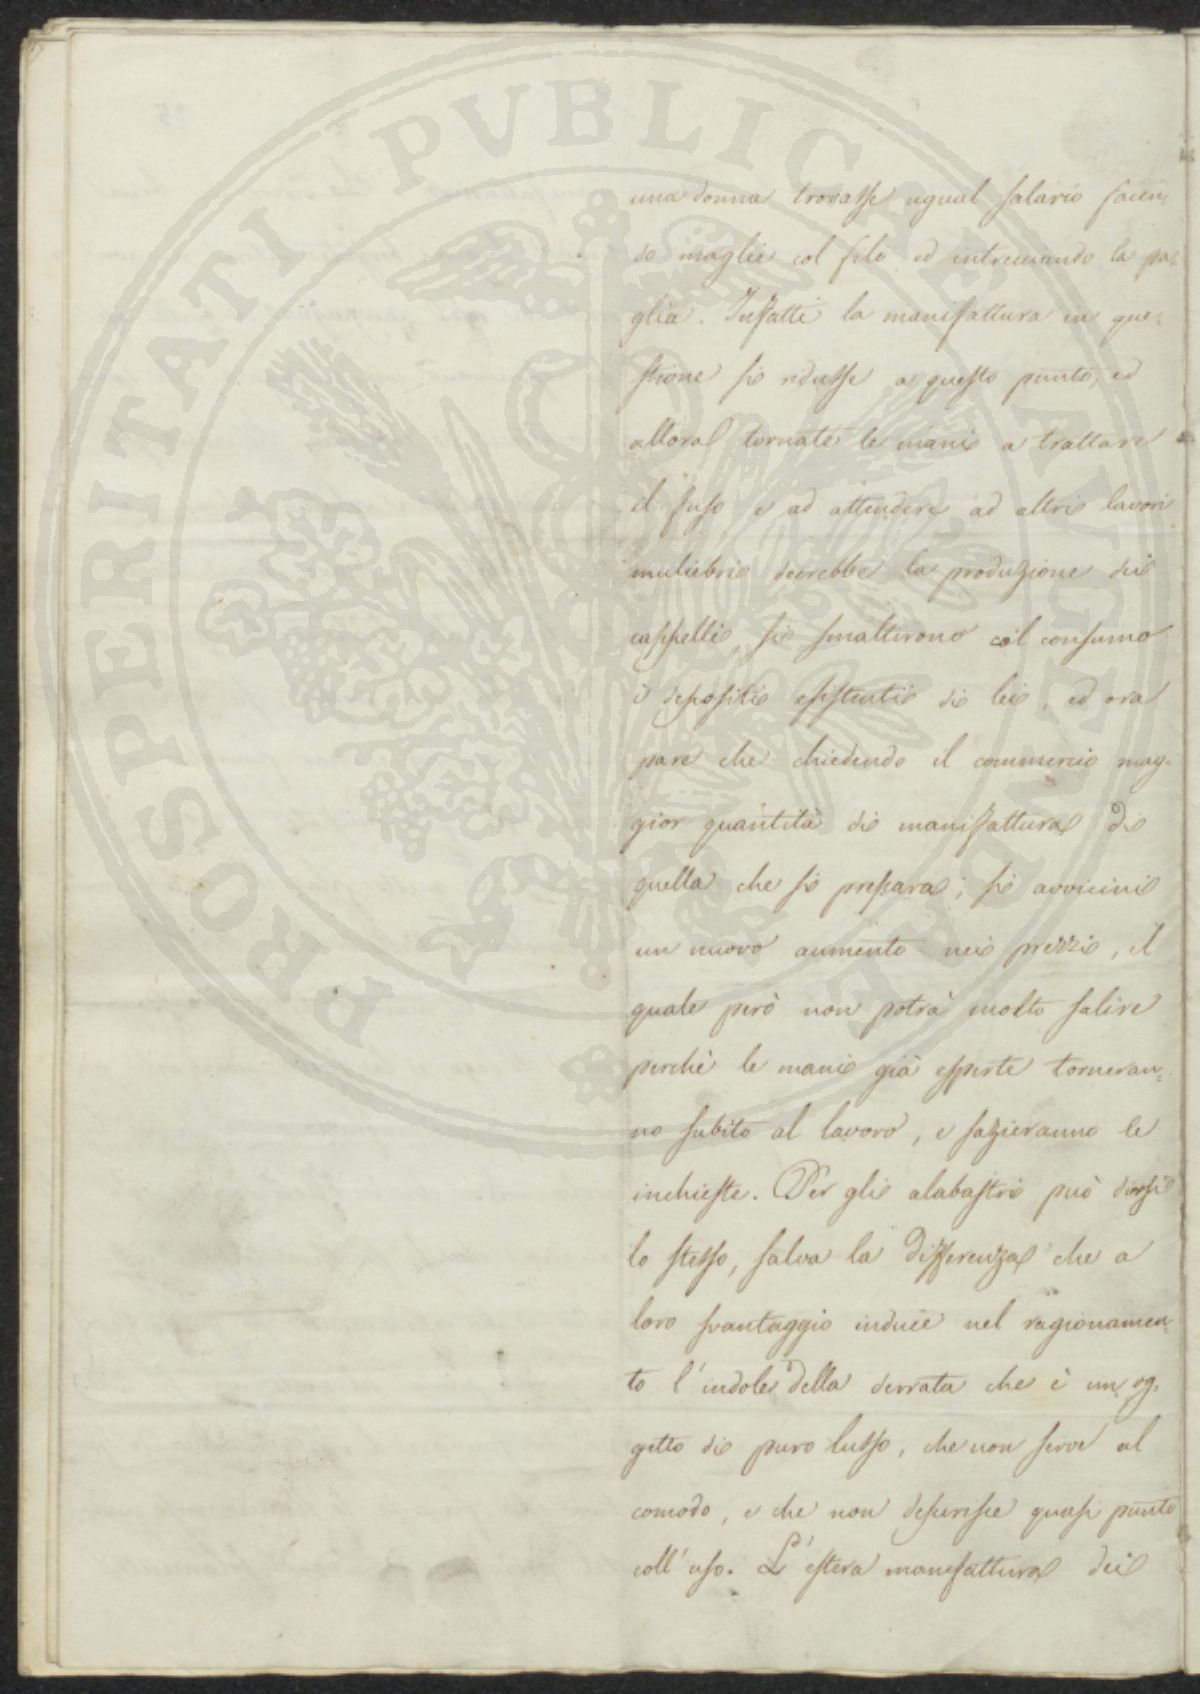 una donna trovasse ugual salario facen=
do maglie col filo ed intrecciando la pa=
glia. Infatti la manifattura in que=
stione si ridusse a questo punto, ed
allora tornate le mani a trattare
il fuso e ad attendere ad altri lavori
muliebri decrebbe la produzione dei
cappelli, si smaltirono col consumo
i depositi esistenti di lei, ed ora
pare che chiedendo il commercio mag=
gior quantità di manifattura di
quella che si prepara; si avvicini
un nuovo aumento nei prezzi, il
quale però non potrà molto salire
perchè le mani già esperte torneran=
no subito al lavoro, e sazieranno le
inchieste. Per gli alabastri può dirsi
lo stesso, salva la differenza che a
loro svantaggio induce nel ragionamen=
to l'indole della derrata che è un og=
getto di puro lusso, che non serve al
comodo, e che non deperisce quasi punto
coll'uso. L'estera manifattura dei
PROSPERITATI PVBLICAE AVGENDAE